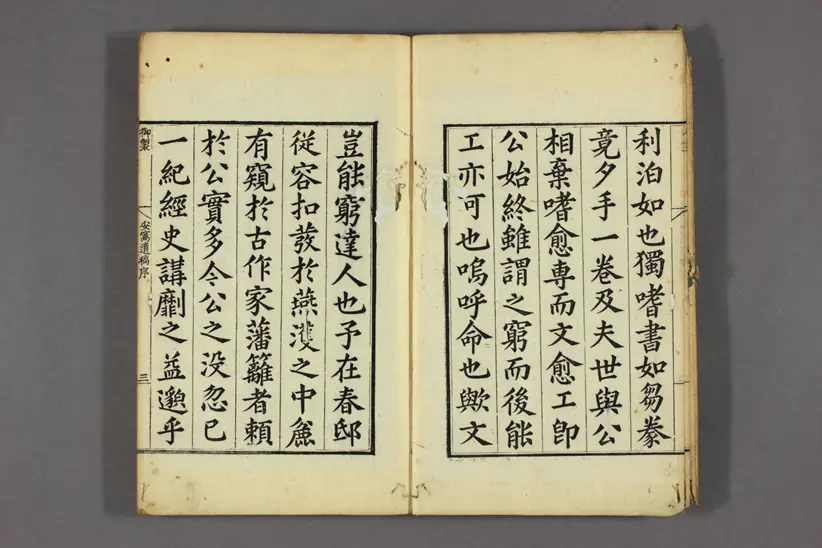 利泊如也獨嗜書如芻豢
竟夕手一卷及夫世與公
相棄嗜愈專而文愈工卽
公始終雖謂之窮而後能
工亦可也嗚呼命也歟文
豈能窮達人也予在春邸
從容扣發於燕濩之中麄
有窺於古作家藩籬者賴
於公實多今公之没忽已
一紀經史講劘之益邈乎
御製
安窩遺稿序
三